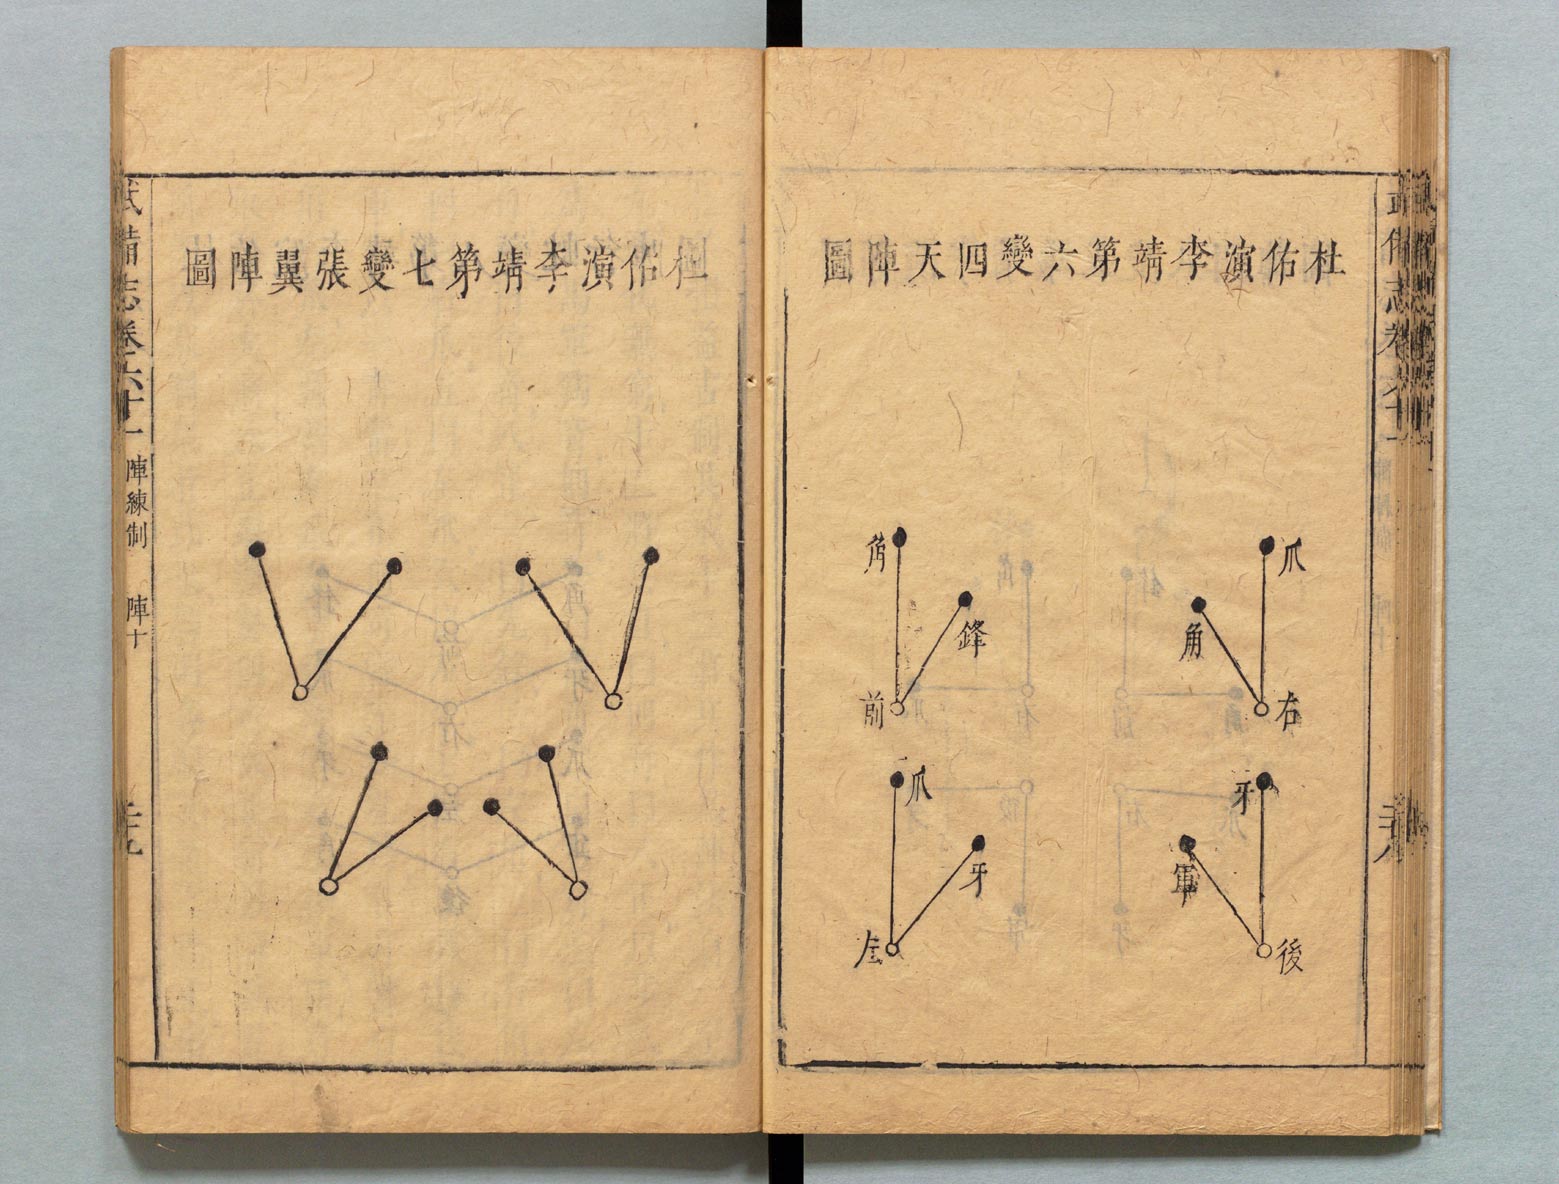 杜佑演李靖第六變四天陣圖
角
爪
鋒
角
前
右
爪
牙
牙
軍
左
後
杜佑演李靖第七變張翼陣圖
武備志卷六十一 陣練制 陣十 三十九